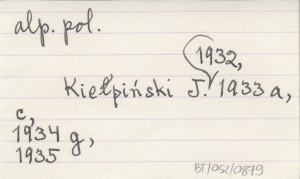 alp. pol.
1932,
Kiełpiński J. 1933 a,
c,
1934 g,
1935
BT/052/0879